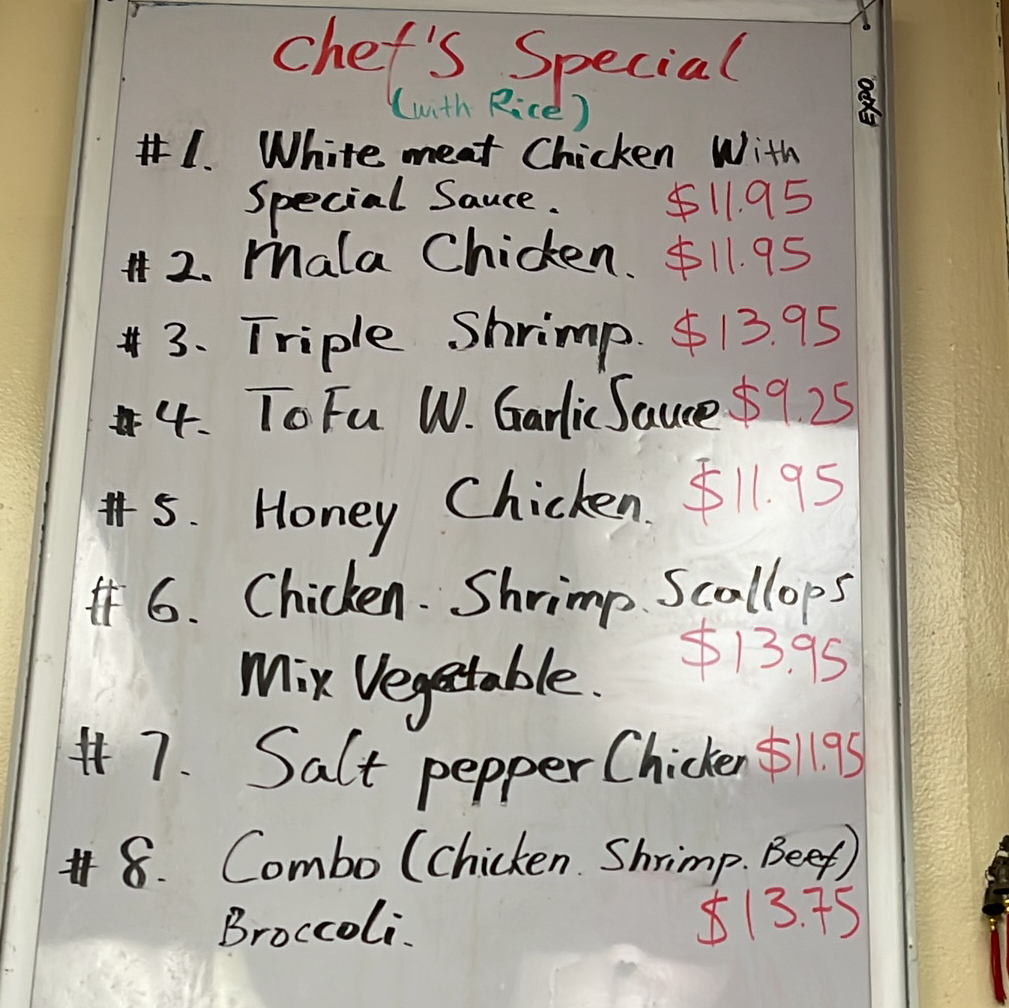 Chef's Special
(with Rice)
EXPO
#1. White meat Chicken With
Special Sauce. $11.95
#2. Mala Chicken. $11.95
#3. Triple Shrimp. $13.95
#4. ToFu W. Garlic Sauce $9.25
#5. Honey Chicken. $11.95
#6. Chicken. Shrimp. Scallops
Mix Vegetable. $13.95
#7. Salt pepper Chicken $11.95
#8. Combo (Chicken. Shrimp. Beef)
Broccoli. $13.75